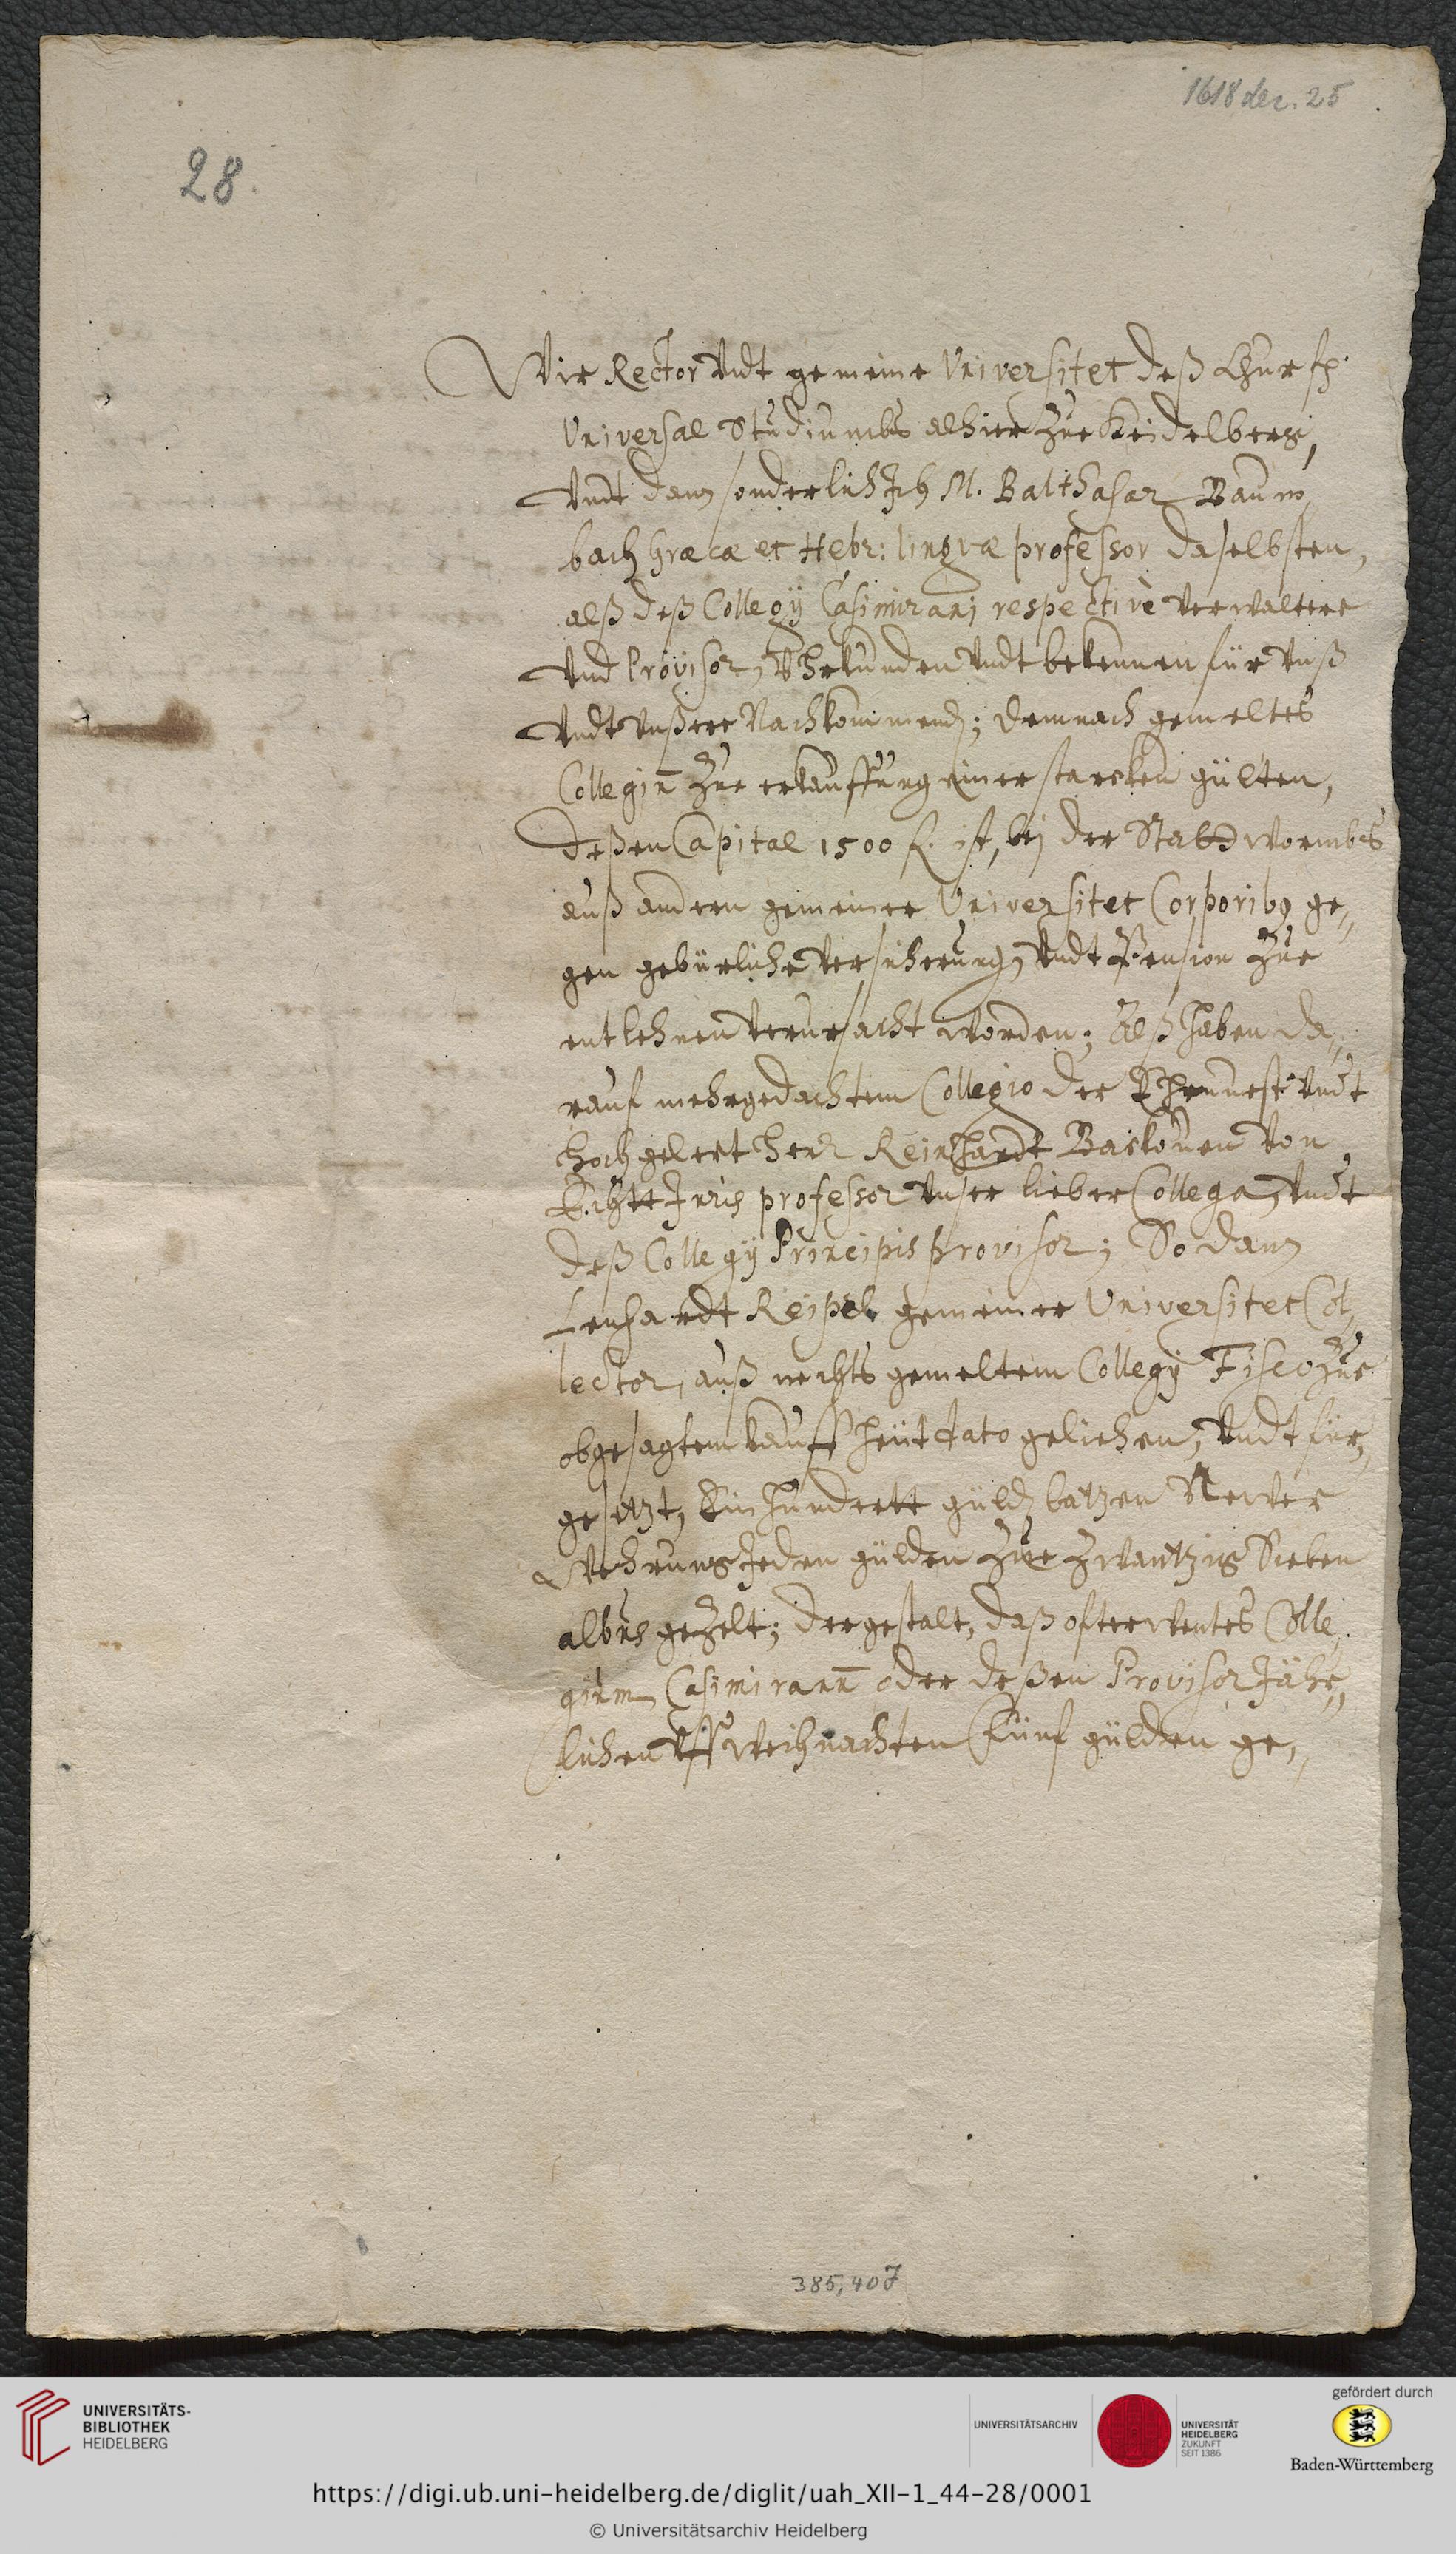 1618 dec. 25
28.
Wir Rector vndt gemeine Universitet deß Churfh.
Universal Studiumbs alhier zue Heidelberg,
vndt dann sonderlich Ich M. Balthasar Baum,
bach Græcæ et Hebr: linguæ professor daselbsten,
alß deß Collegÿ Casimiranj respectivè verwalter
vnd Provisor, Vhrkunden vndt bekennen für vnß
vndt vnßere Nachkommend; demnach gemeltes
Collegiū zue erkauffung einer starcken gülten,
deßen Capital 1500 fl. ist, bej der Stadt Wormbs
auß andern gemeiner Universitet Corporib9 ge,,
gen gebürliche versicherung, vndt Pension zue
entlehnen verursacht worden; Alß haben da,,
rauf mehrgedachtem Collegio der Ehrnuest vndt
hochgelert herr Reinhardt Backouen von
Echtt Juris professor vnser lieber Collega, vndt
deß Collegÿ Principis provisor; So dann
Lenhardt Reipel gemeiner Universitet Col,
lector, auß nechts gemeltem Collegÿ Fisco zue
obgesagtem kauff heut dato geliehen, vndt für,,
gesetzt, Ein hundertt güld batzen Newer
Wehrung Jeden gülden zue zwantzig Sieben
albus gezelt; dergestalt, daß ofterwentes Colle,
gium Casimiranū oder deßen Provisor Jähr,,
lichen vff Weihnachten Fünf gülden ge,,
385,407
UNIVERSITÄTS-
BIBLIOTHEK
HEIDELBERG
UNIVERSITÄTSARCHIV
UNIVERSITÄT
HEIDELBERG
ZUKUNFT
SEIT 1386
gefördert durch
Baden-Württemberg
https://digi.ub.uni-heidelberg.de/diglit/uah_XII-1_44-28/0001
© Universitätsarchiv Heidelberg